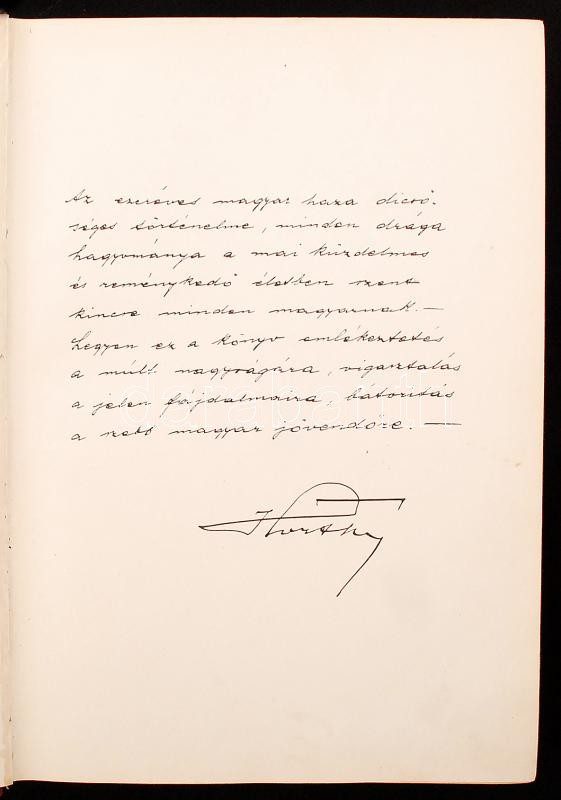 Az ezeréves magyar haza dicső-
séges történelme, minden drága
hagyománya a mai küzdelmes
és reménykedő életben szent
kincse minden magyarnak. —
Legyen ez a könyv emlékeztetés
a múlt nagyságára, vigasztalás
a jelen fájdalmaira, bátorítás
a szebb magyar jövendőre. —
Horthy